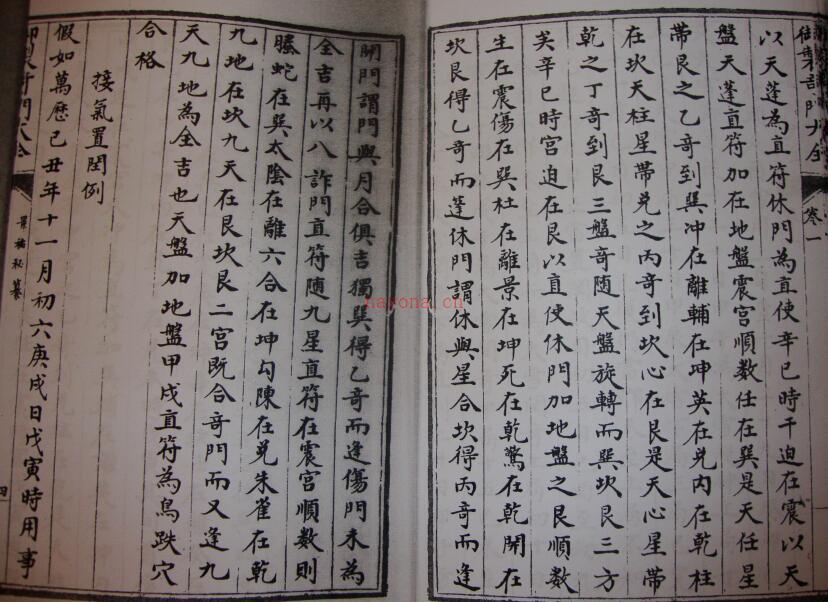 以天蓬為直符休門為直使辛巳時干迫在震以天
盤天蓬直符加在地盤震宮順數任在巽是天任星
帶艮之乙奇到巽冲在離輔在坤英在兌內在乾柱
在坎天柱星帶兌之丙奇到坎心在艮是天心星帶
乾之丁奇到艮三盤奇隨天盤旋轉而巽坎艮三方
美辛巳時宮迫在艮以直使休門加地盤之艮順數
生在震傷在巽杜在離景在坤死在乾驚在乾開在
坎艮得乙奇而蓬休門謂休與星合坎得丙奇而逢
卷一
開門謂門與月合俱吉獨巽得乙奇而逢傷門未為
全吉再以八詐門直符隨九星直符在震宮順數則
螣蛇在巽太陰在離六合在坤勾陳在兌朱雀在乾
九地在坎九天在艮坎艮二宮既合奇門而又逢九
天九地為全吉也天盤加地盤甲戌直符為鳥跌穴
合格
接氣置閏例
假如萬歷己丑年十一月初六庚戌日戊寅時用事
景祐秘纂
四
narona.cn